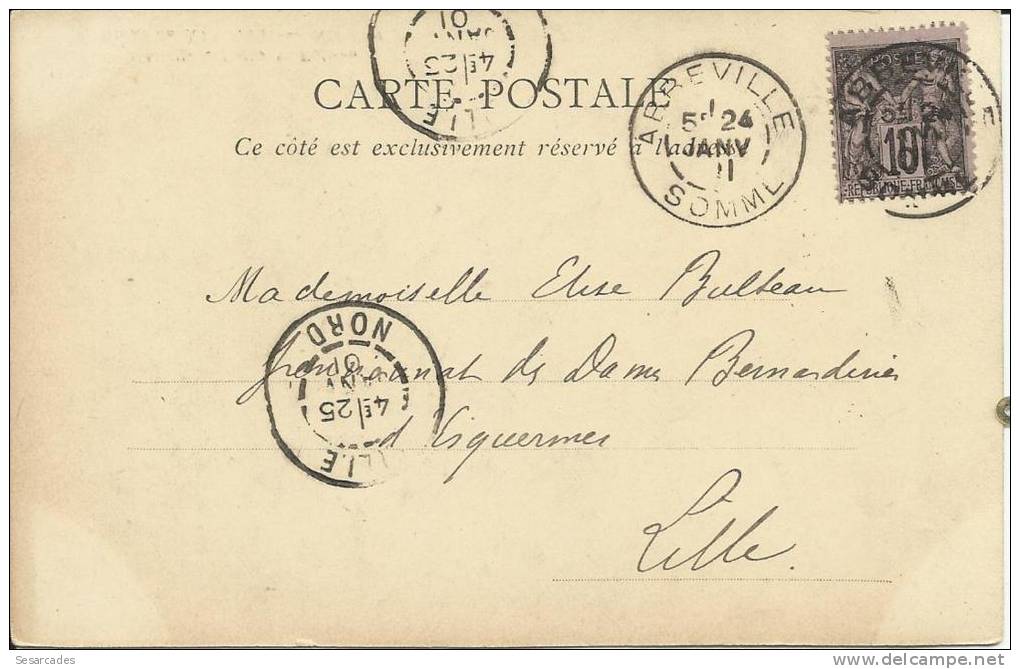 CARTE POSTALE
Ce côté est exclusivement réservé à l'adresse
ABBEVILLE
5E 24
JANV
SOMME
10
REPUBLIQUE FRANÇAISE
LILLE
4E 25
JANV
01
Mademoiselle Elise Bulteau
Pensionnat des Dames Bernardines
d'Esquermes
Lille.
NORD
01
4E 25
LILLE
Sesarcades
www.delcampe.net